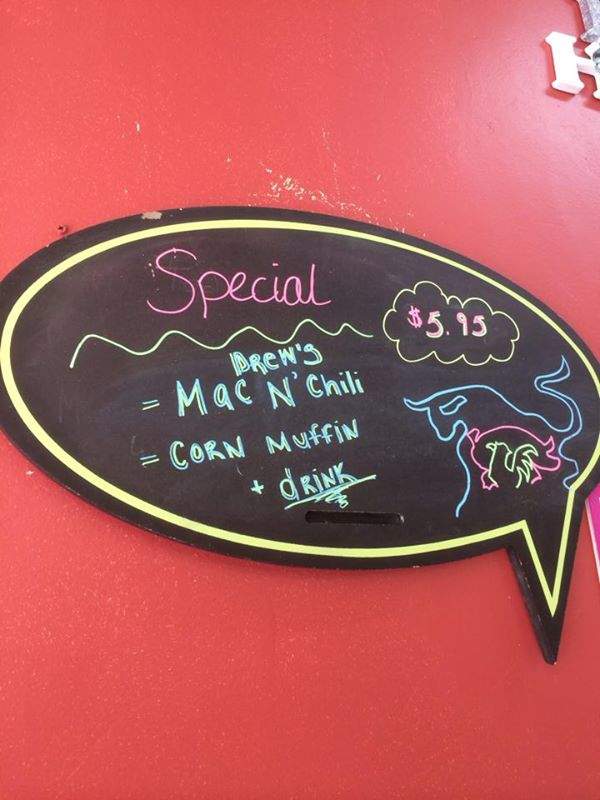 Special
$5.95
DREW'S
= Mac N' Chili
= CORN MuffiN
+ dRINK
H